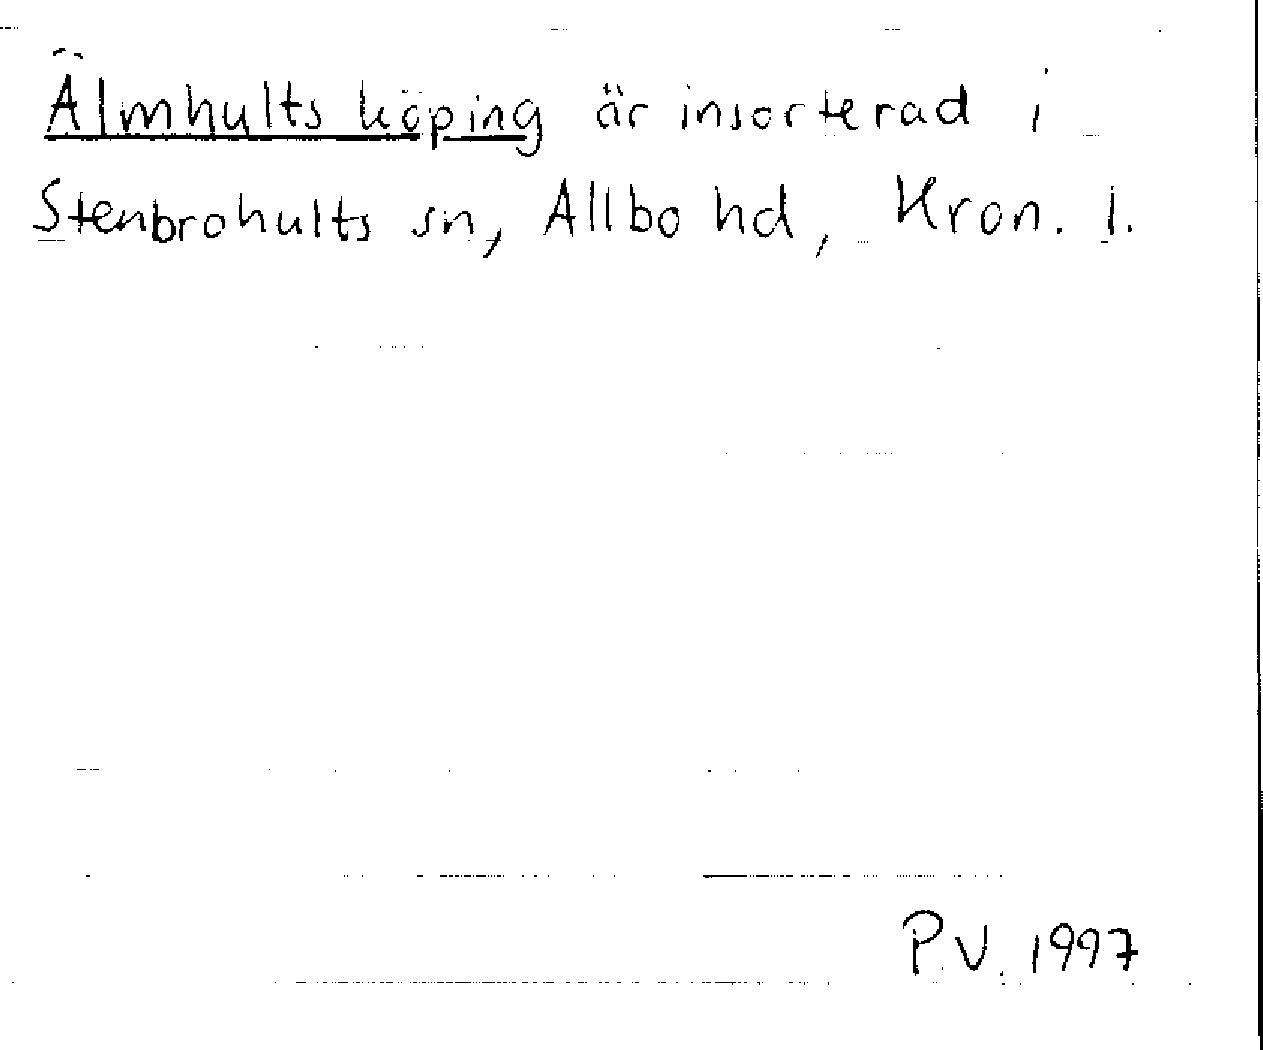 Älmhults köping är insorterad i
Stenbrohults sn, Allbo hd, Kron. l.
P.V. 1997